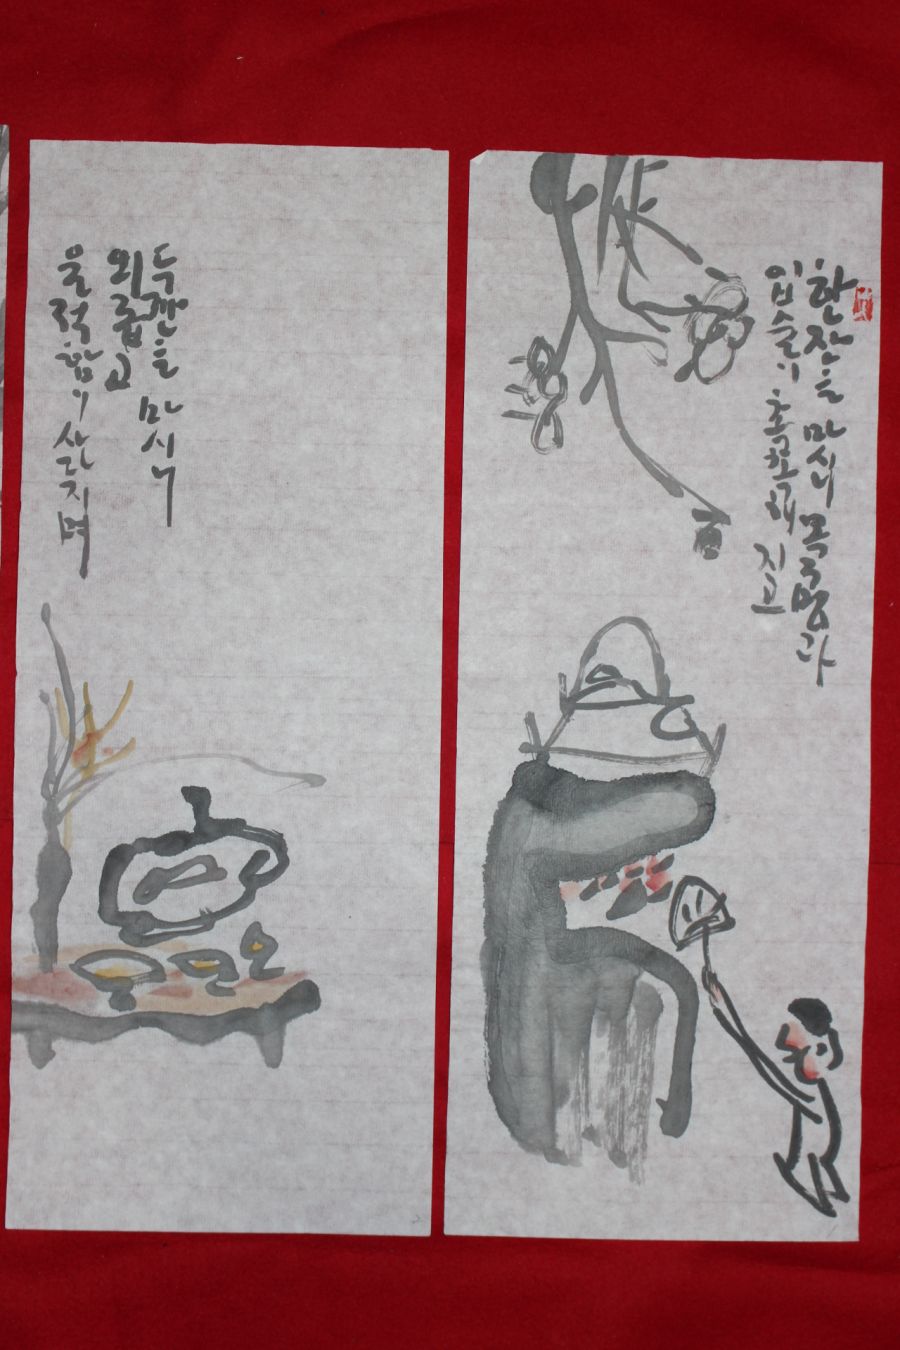 한잔을 마시니 목구멍과
입술이 촉촉해 지고
두잔을 마시니
외롭고
울적함이 사라지며